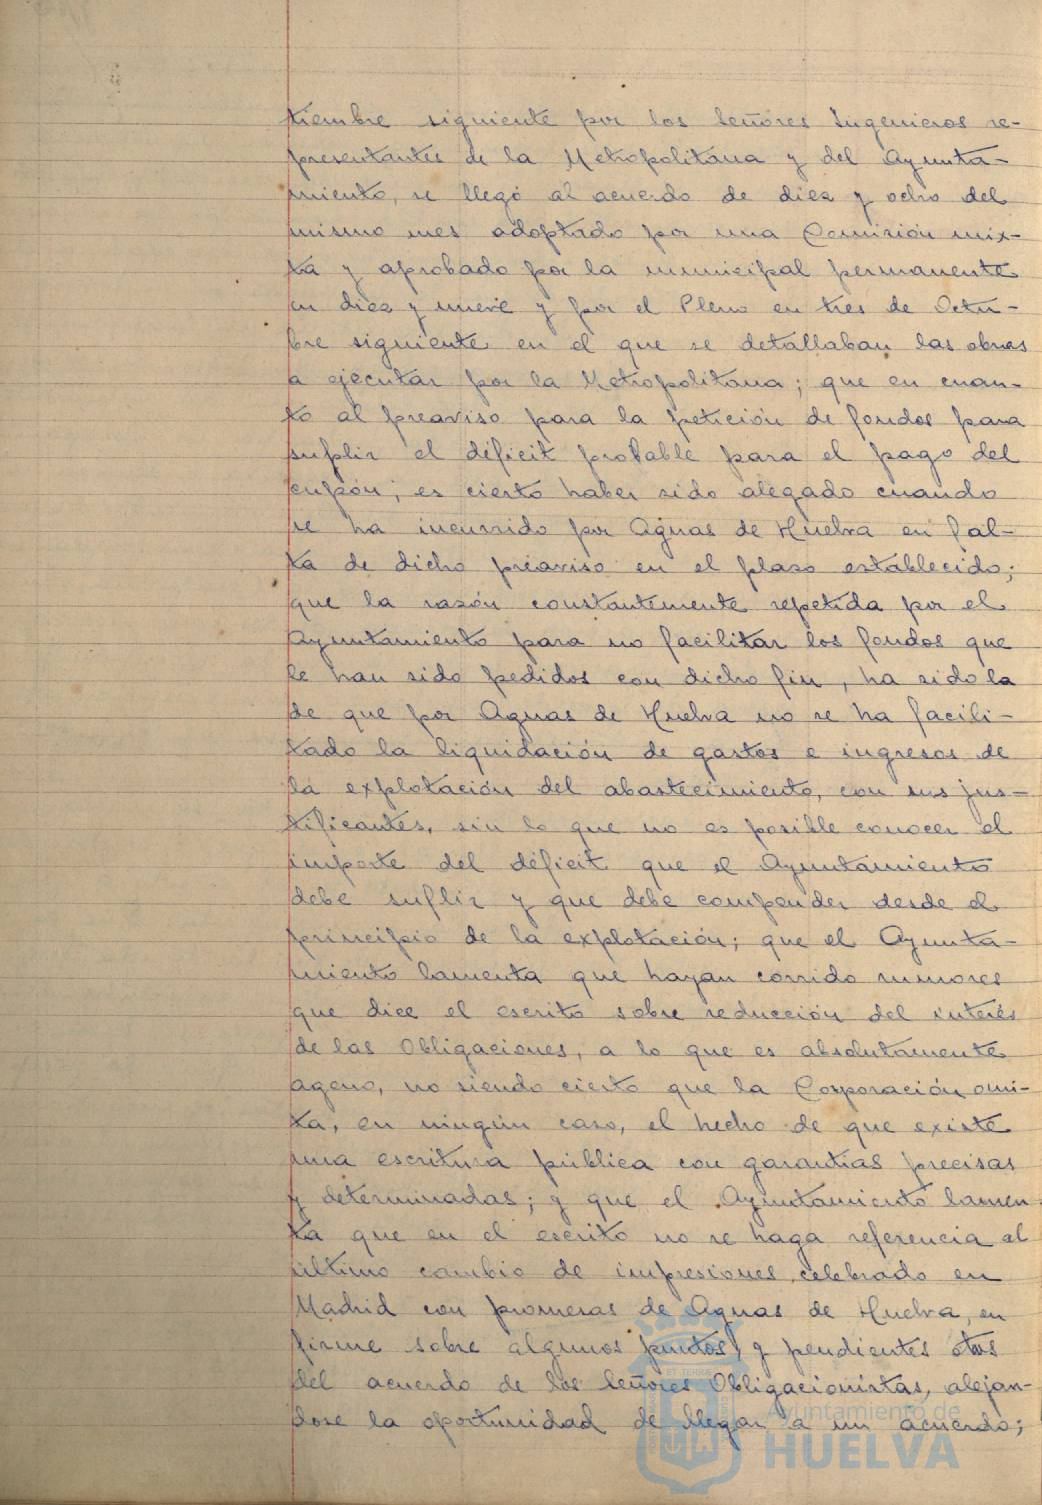 tiembre siguiente por los Señores Ingenieros re-
presentantes de la Metropolitana y del Ayunta-
miento, se llegó al acuerdo de diez y ocho del
mismo mes adoptado por una Comisión mix-
ta y aprobado por la municipal permanente
en diez y nueve y por el Pleno en tres de Octu-
bre siguiente en el que se detallaban las obras
a ejecutar por la Metropolitana; que en cuan-
to al preaviso para la petición de fondos para
suplir el déficit probable para el pago del
cupón; es cierto haber sido alegado cuando
se ha incurrido por Aguas de Huelva en fal-
ta de dicho préaviso en el plaso establecido;
que la razón constantemente repetida por el
Ayuntamiento para no facilitar los fondos que
le han sido pedidos con dicho fin, ha sido la
de que por Aguas de Huelva no se ha facili-
tado la liquidación de gastos e ingresos de
la explotación del abastecimiento, con sus jus-
tificantes, sin lo que no es posible conocer el
importe del déficit que el Ayuntamiento
debe suplir y que debe compender desde el
principio de la explotación; que el Ayunta-
miento lamenta que hayan corrido rumores
que dice el escrito sobre reducción del interés
de las Obligaciones, a lo que es absolutamente
ageno, no siendo cierto que la Corporación omi-
ta, en ningún caso, el hecho de que existe
una escritura pública con garantías precisas
y determinadas; y que el Ayuntamiento lamen-
ta que en el escrito no se haga referencia al
último cambio de impresiones celebrado en
Madrid con promeras de Aguas de Huelva, en
firme sobre algunos puntos, y pendientes otros
del acuerdo de los Señores Obligacionistas, alejan-
dose la oportunidad de llegar a un acuerdo;
Ayuntamiento de
HUELVA